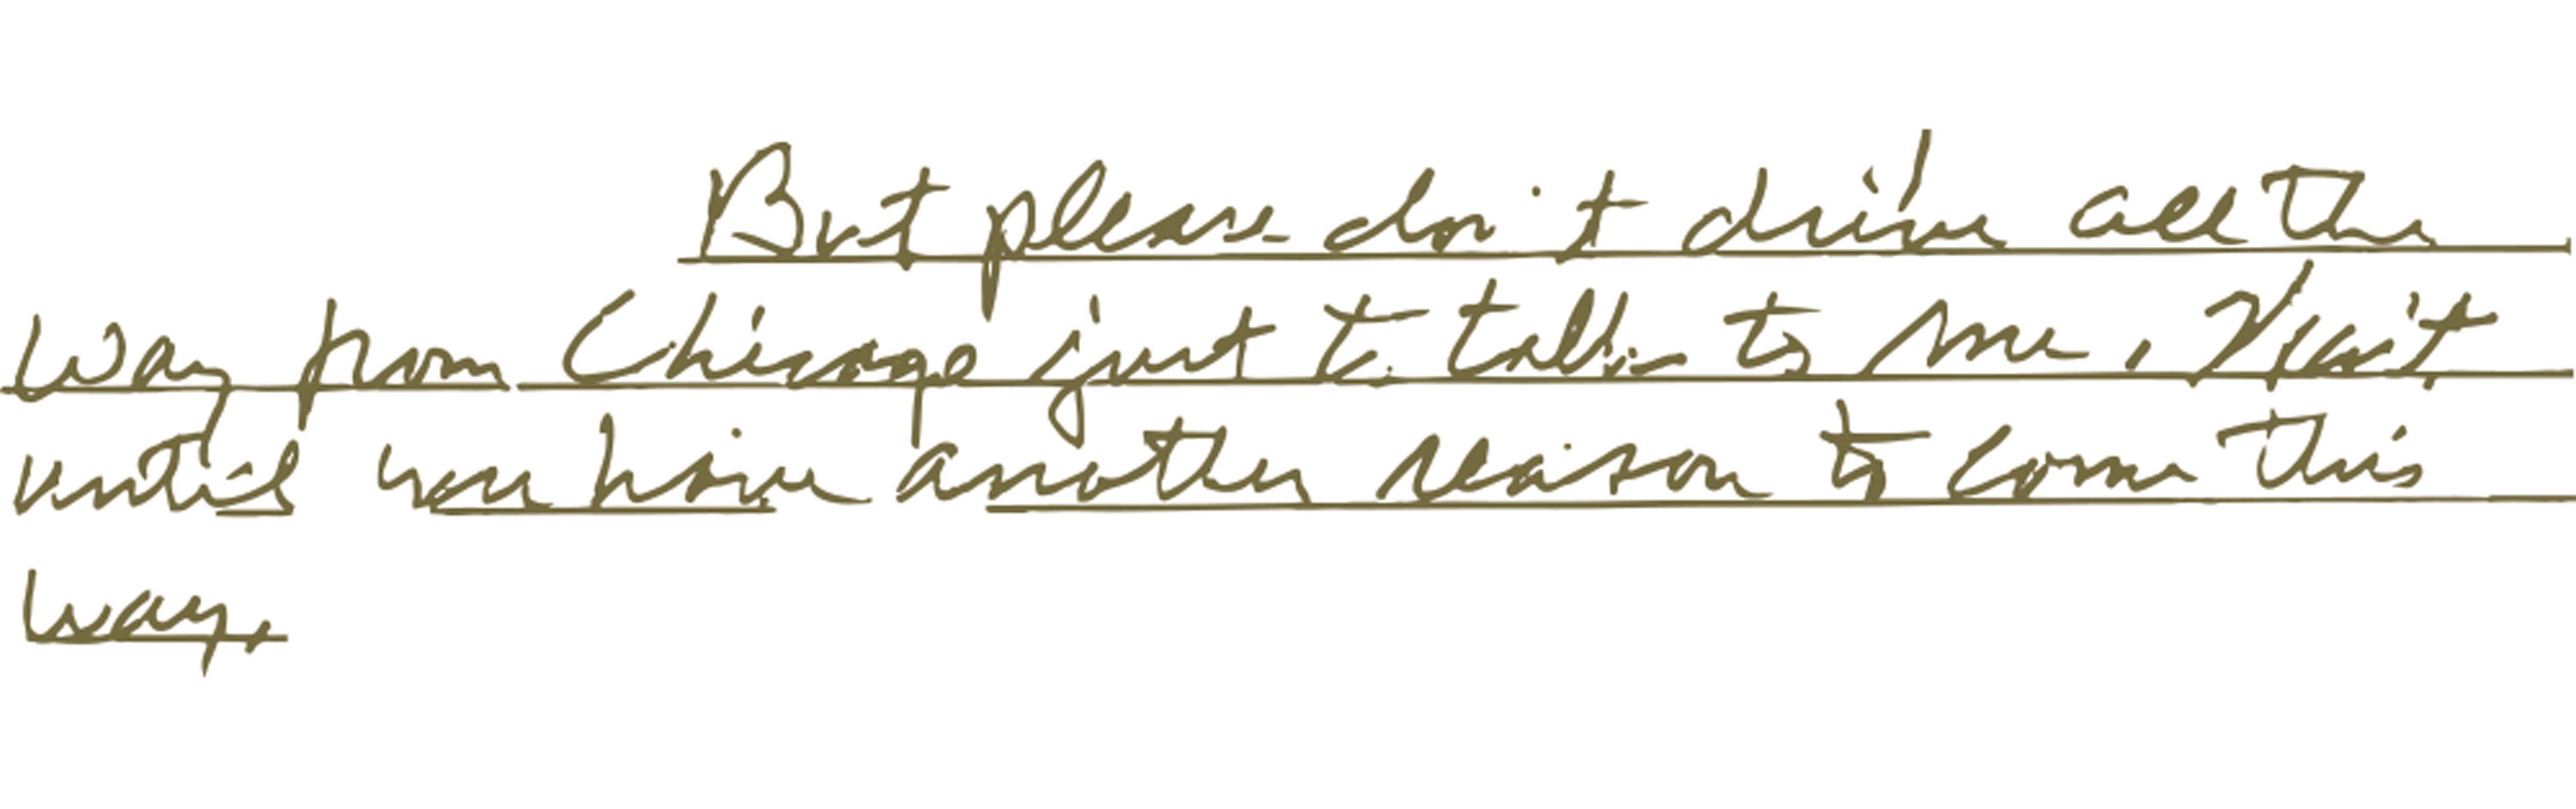 But please don't drive all the
way from Chicago just to talk to me. Wait
until you have another reason to come this
way.